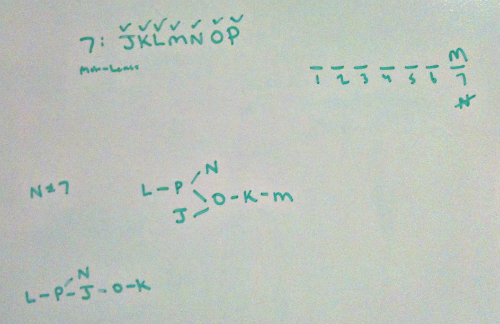 7: JKLMNOP
M
1 2 3 4 5 6 7
N≠7
L-P N
J O-K-M
L-P-J-O-K
N